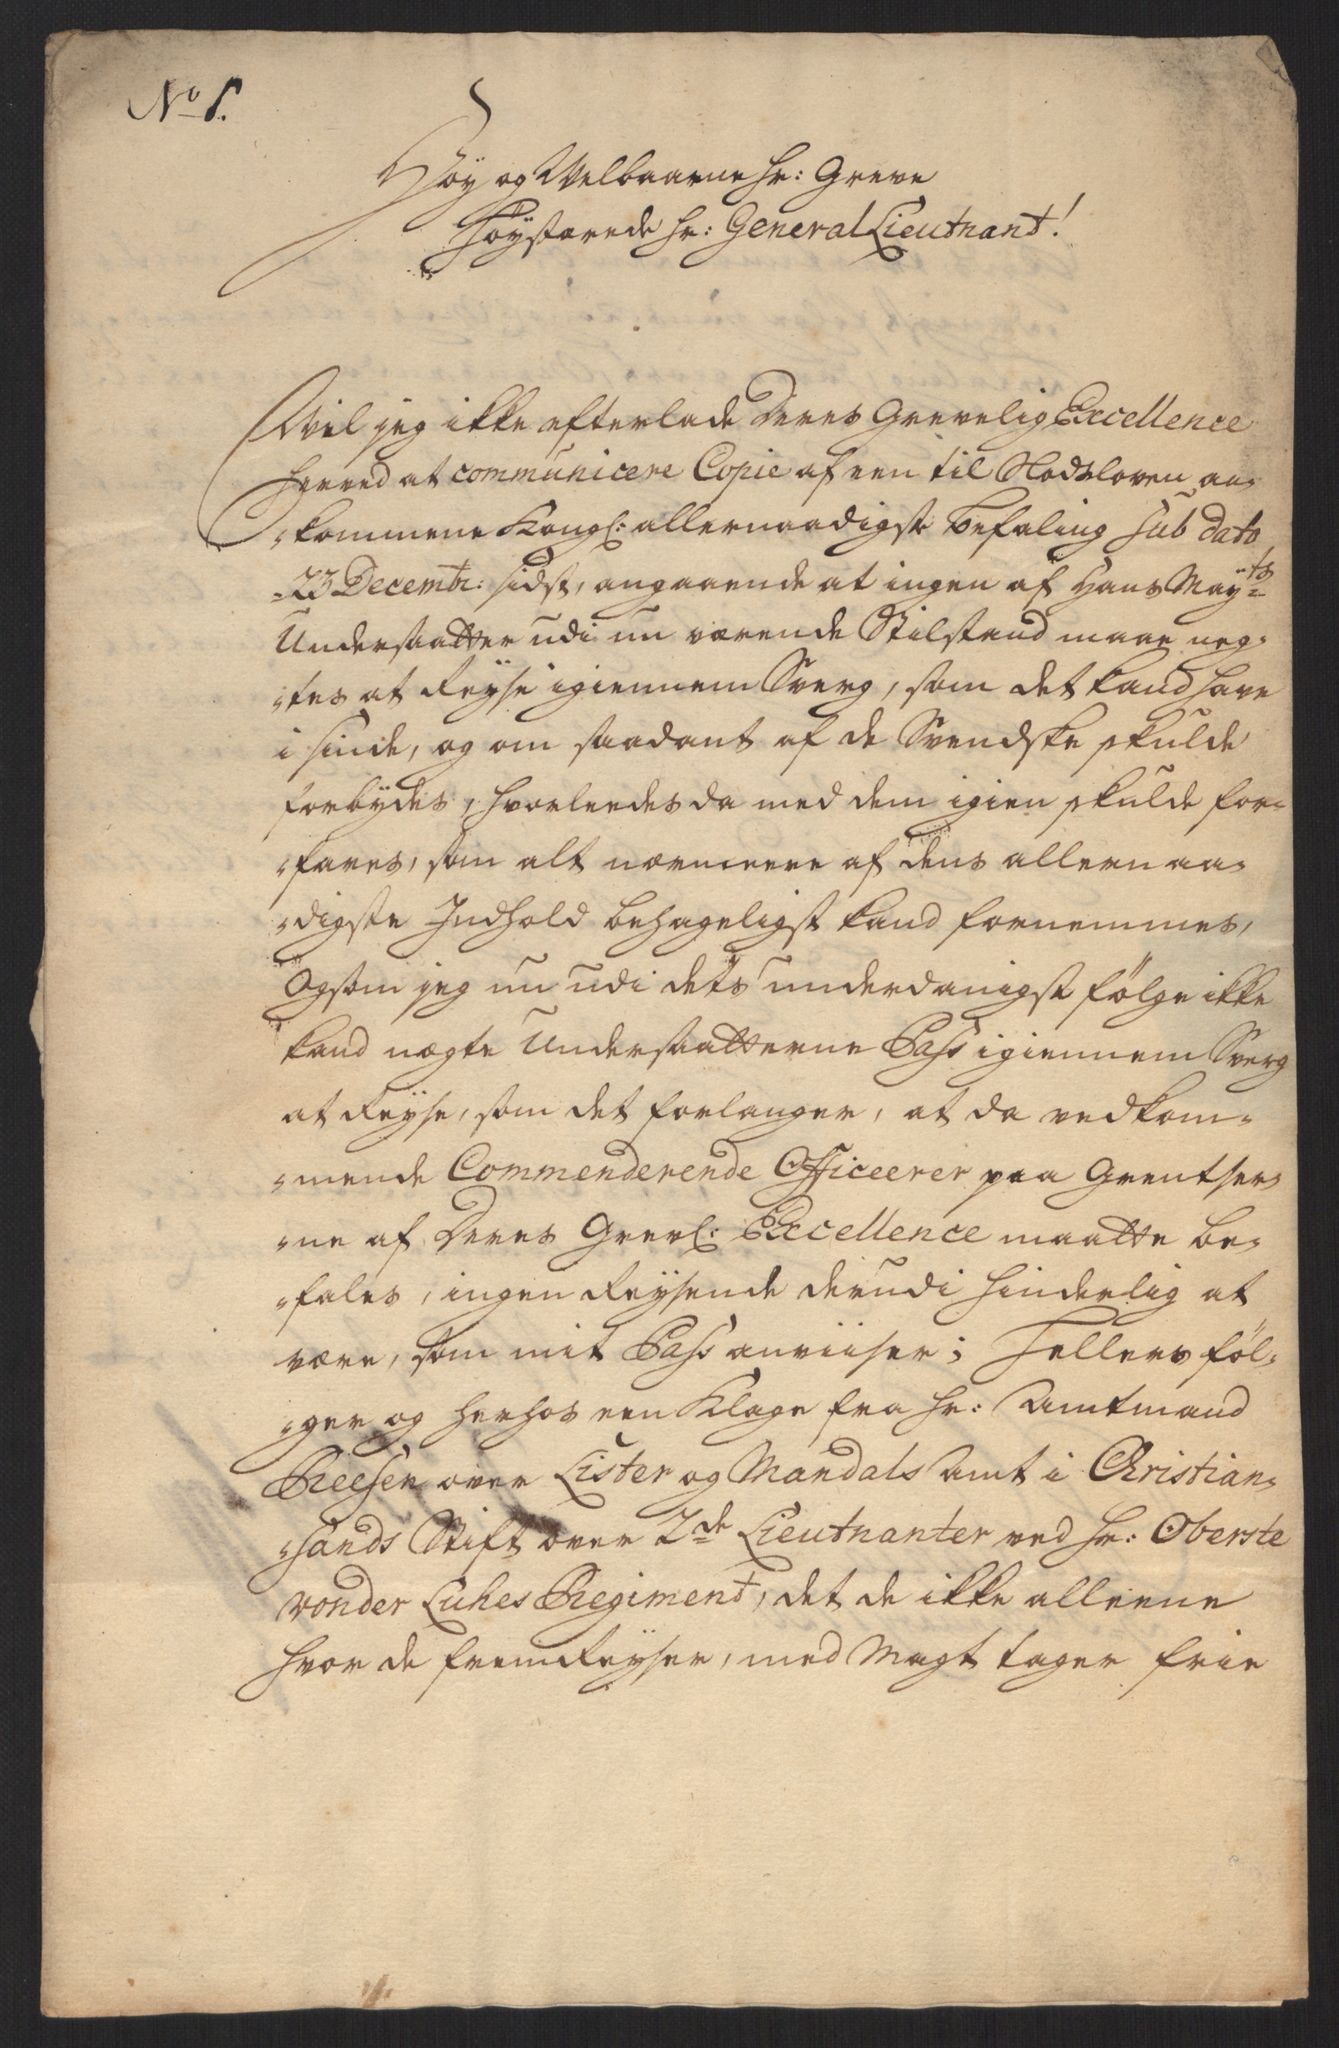 No 1.
Høy og Welbaarne Hr: Greve
Høystærede Hr: General Lieutnant!
Wil jeg ikke efterlade Deres Grevelig Excellence
herved at communicere Copie af een til Slodsloven an-
-kommene Kongl: allernaadigste befaling sub dato
23 Decembr: sidst, angaaende at ingen af Hans Mayts
Undersaatter udi nu værende Stilstand maae neg-
-tes at Reyse igiennem Sverg, som det kand have
i sinde, og om saadant af de Svendske skulde
forbydes, hvorleedes da med dem igien skulde for-
-fares, som alt nærmeere af dens allernaa-
-digste Indhold behageligst kand fornemmes,
Og som jeg nu udi dets underdanigst følge ikke
kand nægte Undersaatterne Pass igiennem Sverg
at Reyse, som det forlanger, at da vedkom-
-mende Commenderende Officeerer paa Grentser-
-ne af Deres Grevl: Excellence maatte be-
-fales, ingen Reysende derudi hinderlig at
være, som mit Pass anviiser; Tellers føl-
-ger og herhos een Klage fra Hr: Amtmand
Reesen over Lister og Mandals Amt i Christian-
-sands Stift over 2de Lieutnanter ved Hr: Oberste
vonder Lühes Regiment, det de ikke alleene
hvor de frem Reyser, med Magt tager frie